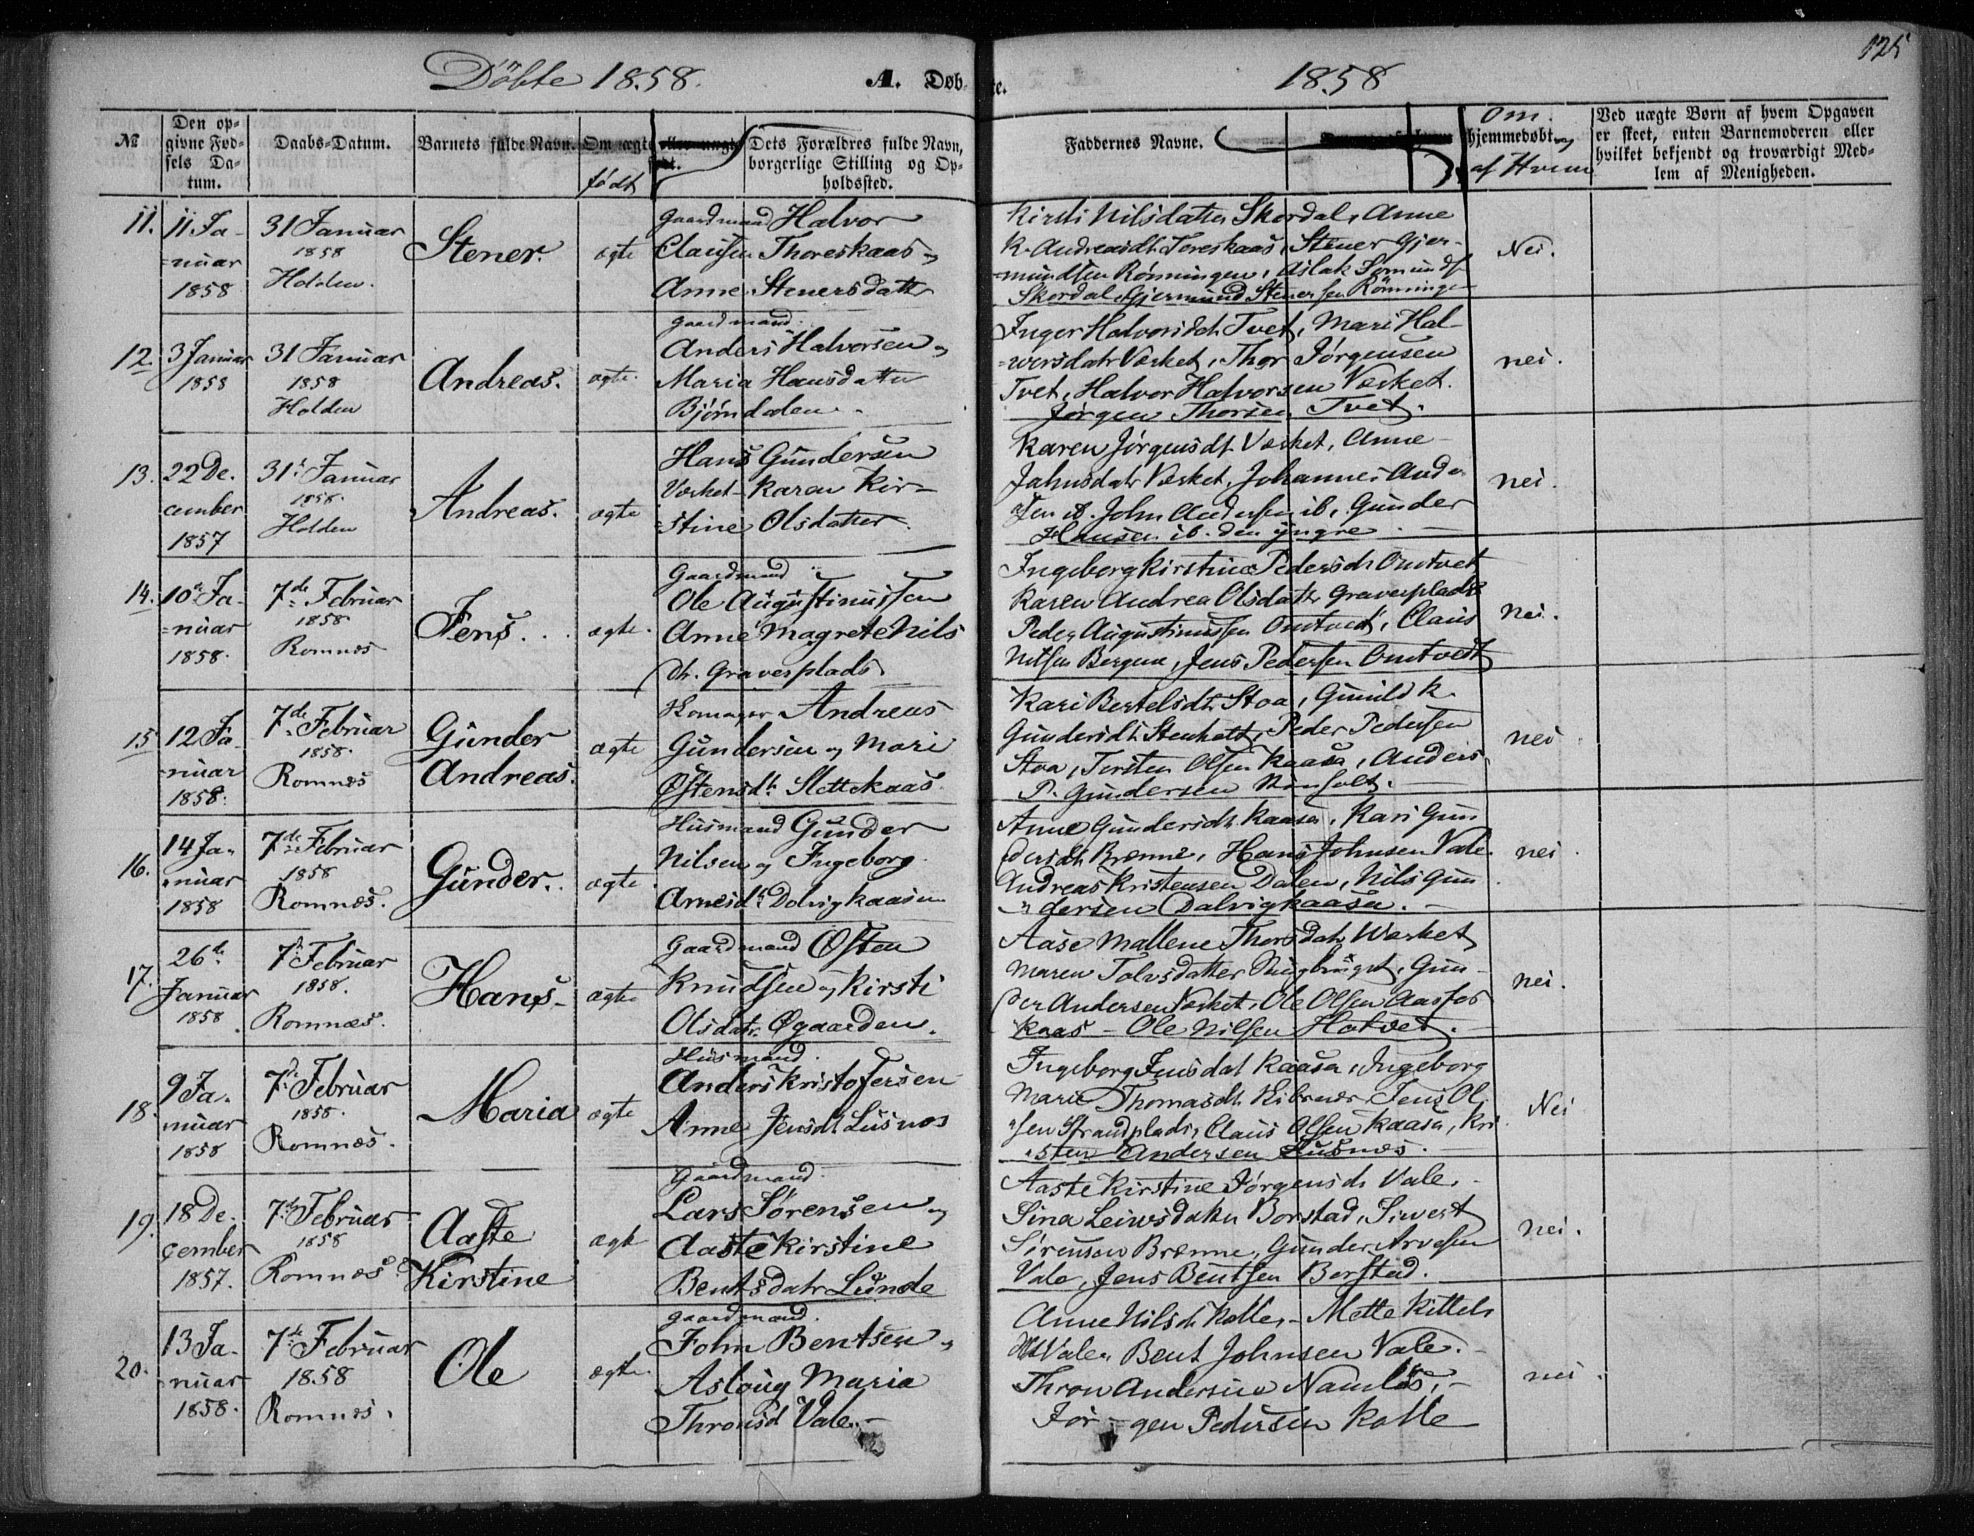 Döbte 1858.
A. Døb-
te.
1858
125
№
Den op-
givne Fød-
sels Da-
tum.
Daabs-Datum.
Barnets fulde Navn.
Om ægte
født
eller uægte
født.
Dets Forældres fulde Navn,
borgerlige Stilling og Op-
holdssted.
Faddernes Navne.
Om
hjemmedøbt og
af Hvem
Ved uægte Børn af hvem Opgaven
er skeet, enten Barnemoderen eller
hvilket bekjendt og troværdigt Med-
lem af Menigheden.
11.
11 Ja-
=nuar
1858
31 Januar
1858
Holden.
Stener.
ægte
Gaardmand Halvor
Clausen Thoreskaas og
Anne Stenersdatter
Kirsti Nilsdatter Skordal, Anne
K. Andreasdt. Toreskaas, Stener Gjer-
=mundsen Rønningen, Aslak Sømunds.
Skordal, Gjermund Stenersen Rönningen
Nei.
12.
3 Januar
1858
31 Januar
1858
Holden
Andreas.
ægte.
Gaardmand.
Anders Halvorsen og
Maria Hansdatter
Bjørndalen.
Inger Halvorsdt. Tvet, Mari Hal-
=vorsdatr Værket, Thor Jørgensen
Tvet, Halvor Halvorsen Værket.
Jørgen Thorsen Tvet.
nei.
13.
22 De-
cember
1857
31 Januar
1858.
Holden
Andreas.
ægte
Hans Gundersen
Værket - Karen Kir-
=stine Olsdatter.
Karen Jørgensdt. Værket, Anne
Jahnsdatr Værket, Johannes Ander
sen ib. John Andersen ib, Gunder
Hansen ib. den yngre.
nei.
14.
10de Ja-
=nuar
1858.
7de Februar
1858.
Romnæs
Jens.
ægte.
Gaardmand
Ole Augustinussen
Anne Magrete Nils
dt. Gravesplads
Ingeborg Kirstine Pedersdt. Omtvet,
Karen Andrea Olsdatter Gravesplads
Peder Augustinussen Omtvedt, Claus
Nilsen Bergene, Jens Pedersen Omtvedt
nei.
15
12 Ja-
=nuar
1858.
7de Februar
1858.
Romnæs
Gunder
Andreas.
ægte
Andreas
Gundersen og Mari
Østensdt. Slettekaas.
Kari Bertelsdt. Stoa, Gunild K.
Gundersdt. Stenholt, Peder Pedersen
Stoa, Torsten Olsen Kaasa, Anders
P. Gundersen Stenholt.
nei.
16.
14 Ja-
nuar
1858
7de Februar
1858
Romnæs.
Gunder.
ægte.
Husmand Gunder
Nilsen og Ingeborg
Arnesdt. Dalvigkaasen
Anne Gundersdt. Kaasa, Kari Gun
dersdt. Brenne, Hans Johnsen Vale.
Andreas Kristensen Dalen, Nils Gun
dersen Dalvigkaasa.
nei.
17.
26de
Januar
1858
7de Februar
1858.
Romnæs.
Hans
ægte
Gaardmand Østen
Knudsen og Kirsti
Olsdatr. Øgaarden.
Aase Mallene Thorsdatr. Wærket
Maren Tolvsdatter, Gun-
der Andersen Værket, Ole Olsen Aasfos
kaas - Ole Nilsen Hatvet.
nei.
18.
9 Ja-
nuar
1858
7de Februar
1858.
Romnæs.
Maria
ægte
Husmand.
Anders Kristofersen
Anne Jensdt. Lusnæs
Ingeborg Jensdat Kaasa, Ingeborg
Marie Thomasdt. Kibenæs, Jens Ol
sen Strandplads, Claus Olsen Kaasa, Kri
sten Andersen Lusnæs.
Nei
19.
18 De-
cember
1857.
7de Februar
1858
Romnæs
Aaste
Kirstine
ægte
Gaardmand.
Lars Sørensen og
Aaste Kirstine
Bentsdatr Lunde
Aaste Kirstine Jørgensdt. Vale,
Sina Leiwsdatter Borstad, Siwert
Sørensen Brenne, Gunder Arvesen
Vale, Jens Bentsen Borstad.
nei.
20.
13 Ja-
nuar
1858.
7de Februar
1858
Romnæs.
Ole
ægte
Gaardmand.
John Bentsen og
Aslaug Maria
Thronsd Vale.
Anne Nilsdt. Kolle, Mette Kittels
dt Vale, Bent Johnsen Vale.
Thron Andersen Namløs,
Jør-gen Pedersen Kolle
nei.